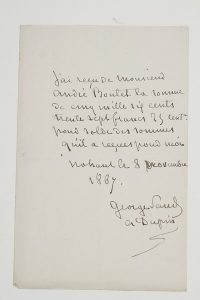 J'ai reçu de monsieur
André Boutet la somme
de cinq mille six cents
trente sept francs 25 cent.
pour solde des sommes
qu'il a reçues pour moi
nohant le 8 novembre
1867.
George Sand
A Dupin